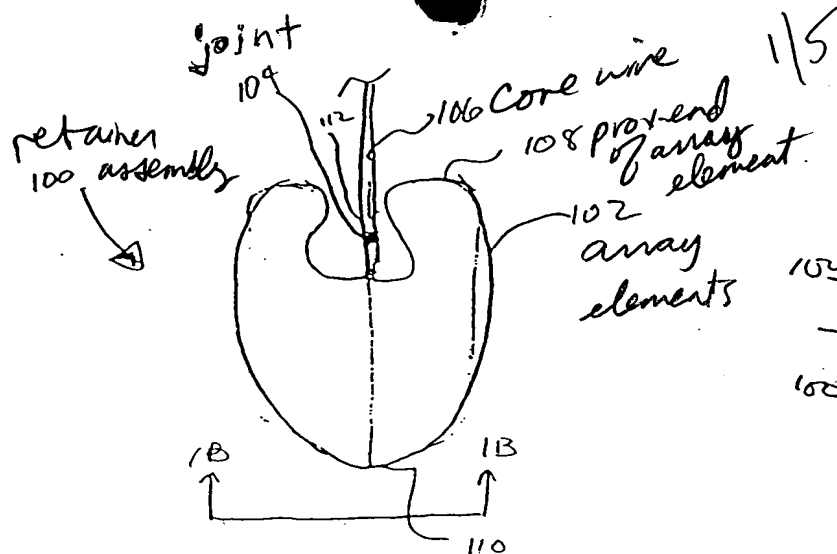 1/5
joint
104
112
106 Core wire
108 prox-end
of array
element.
retainer
100 assembly
102
array
elements
100
1B
1B
110